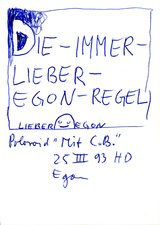 DIE-IMMER-
LIEBER-
EGON-REGEL
LIEBER EGON
Polaroid "Mit C.B."
25 III 93 HD
Egon